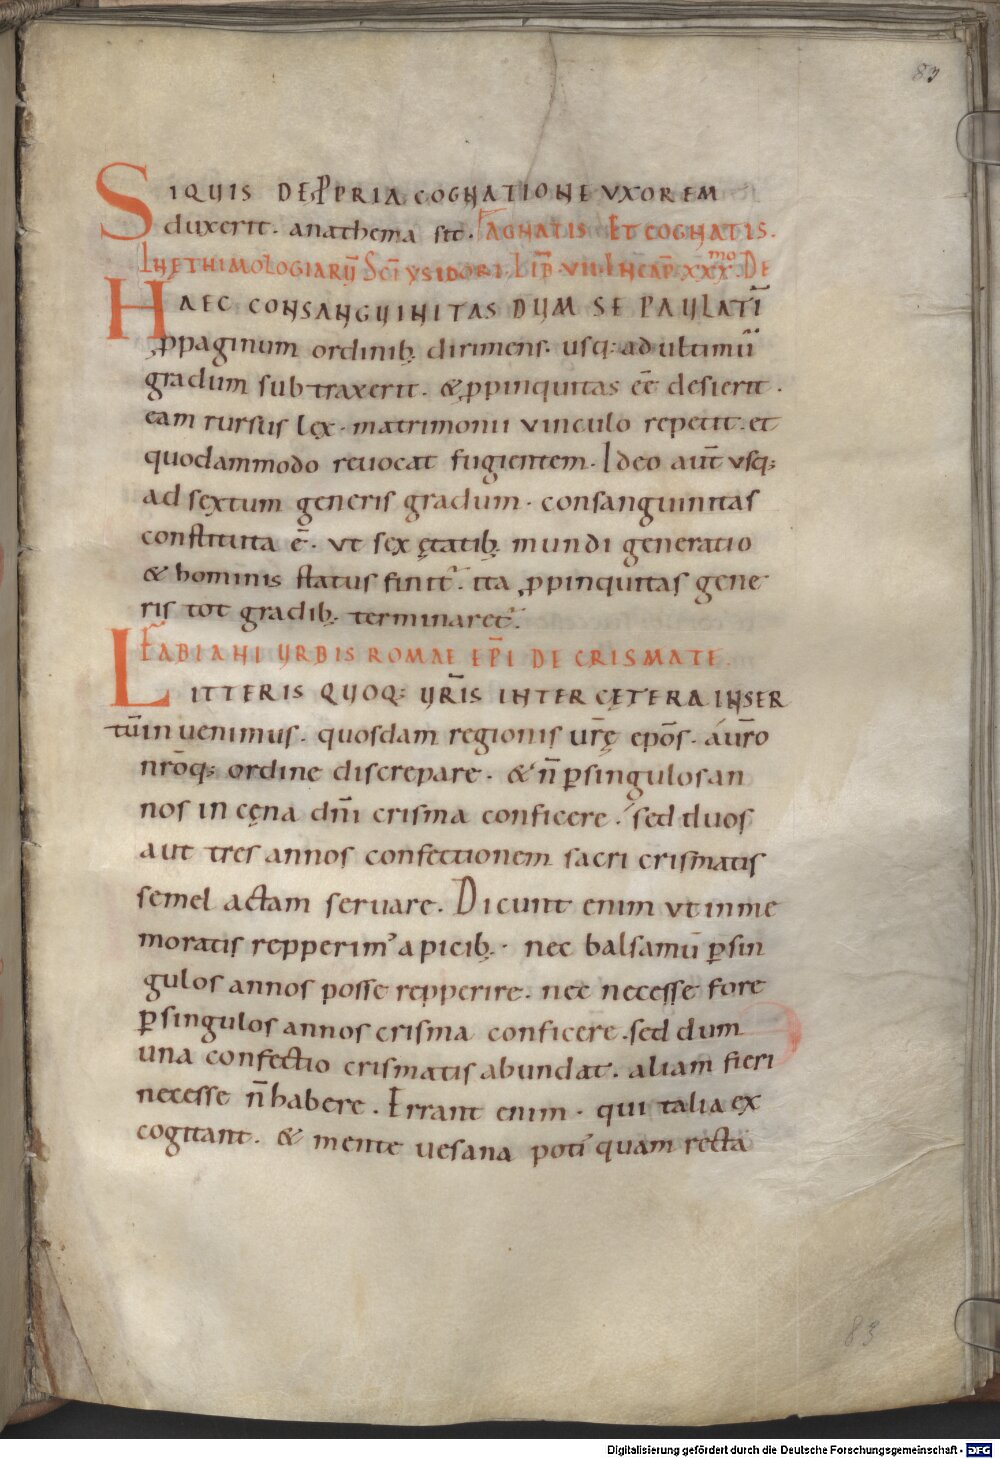 83
SIQUIS DE ꝓPRIA COGNATIONE VXOREM
duxerit. anathema sit. AGNATIS ET COGNATIS.
IN ETHIMOLOGIARŪ SC̄I YSIDORI. LIB̄ VIIII. IN CAP̄. XXXmo. DE
HAEC CONSANGUINITAS DUM SE PAULATĪ
ꝓpaginum ordinib; dirimens. usq; ad ultimū
gradum subtraxerit. & ꝓpinquitas eē desierit.
eam rursus lex. matrimonii vinculo repetit. et
quodammodo reuocat fugientem. Ideo aut̄ vsq;
ad sextum generis gradum. consanguinitas
constituta ē. vt sex ętatib; mundi generatio
& hominis status finit̄. ita ꝓpinquitas gene
ris tot gradib; terminaret̄.
FABIANI URBIS ROMAE EP̄I DE CRISMATE.
LITTERIS QUOQ; UR̄IS INTER CĘTERA INSER
tū inuenimus. quosdam regionis ur̄ę ep̄os. a ur̄o
nr̄oq; ordine discrepare. & n̄ ꝑ singulos an
nos in cęna dn̄i crisma conficere. sed duos
aut tres annos confectionem sacri crismatis
semel actam seruare. Dicunt enim vt in me
moratis repperim᾽ apicib;. nec balsamū ꝑ sin
gulos annos posse repperire. nec necesse fore
ꝑ singulos annos crisma conficere. sed dum
una confectio crismatis abundat. aliam fieri
necesse n̄ habere. Errant enim. qui talia ex
cogitant. & mente uesana poti᾽ quam recta
83
Digitalisierung gefördert durch die Deutsche Forschungsgemeinschaft - DFG